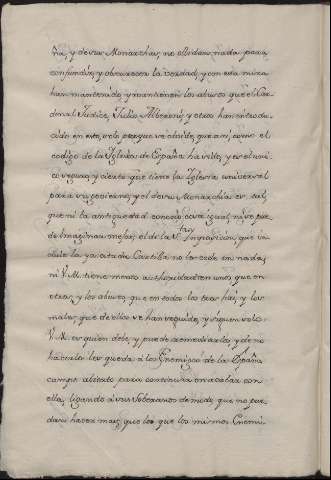 ña, y de esta Monarchia, no olbidan nada para
confundir, y obscurecer la verdad, y con esta mira
han mantenido, y mantienen los abusos que el Car-
denal Judice, Julio Alberoni, y otros han introdu-
cido en este, solo porque ve olvide, que asi como el
codigo de la Iglesia de España ha sido, y es el uni-
co seguro, y cierto que tiene la Iglesia universal
para su govierno, y el de su Monarchia es tal,
que ni la antiguedad conoció cosa igual, ni se pue-
de imaginar mejor, el de la Sta Inquisicion, que
la ya citada no les cede en nada,
ni V. M. tiene menos authoridad en unos, que en
otros, y los abusos que en todos los tres hai, y los
males que de ellos se han seguido, y siguen solo
V. M. es quien debe, y puede remediarlos, y de no
hacerlo les queda á los Enemigos de la España
campo abierto para continuar en acabar con
ella, ligando á sus Soberanos de modo, que no pue-
dan hacer mas, que lo que los mismos Enemi-